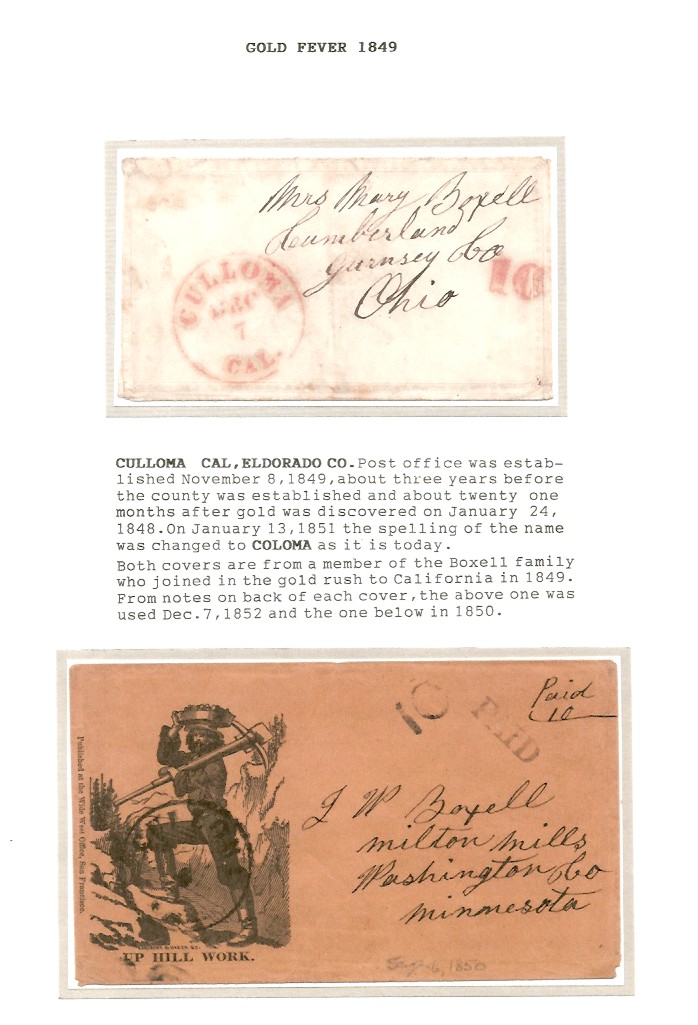 GOLD FEVER 1849
Mrs Mary Boxell
Cumberland
Gurnsey Co
Ohio
10
CULLOMA
DEC
7
CAL.
CULLOMA CAL,ELDORADO CO.Post office was estab-
lished November 8,1849,about three years before
the county was established and about twenty one
months after gold was discovered on January 24,
1848.On January 13,1851 the spelling of the name
was changed to COLOMA as it is today.
Both covers are from a member of the Boxell family
who joined in the gold rush to California in 1849.
From notes on back of each cover,the above one was
used Dec.7,1852 and the one below in 1850.
Paid
10
10 PAID
Published at the Wide West Office, San Francisco.
J W Boxell
milton mills
Washington Co
minnesota
UP HILL WORK.
6, 1850